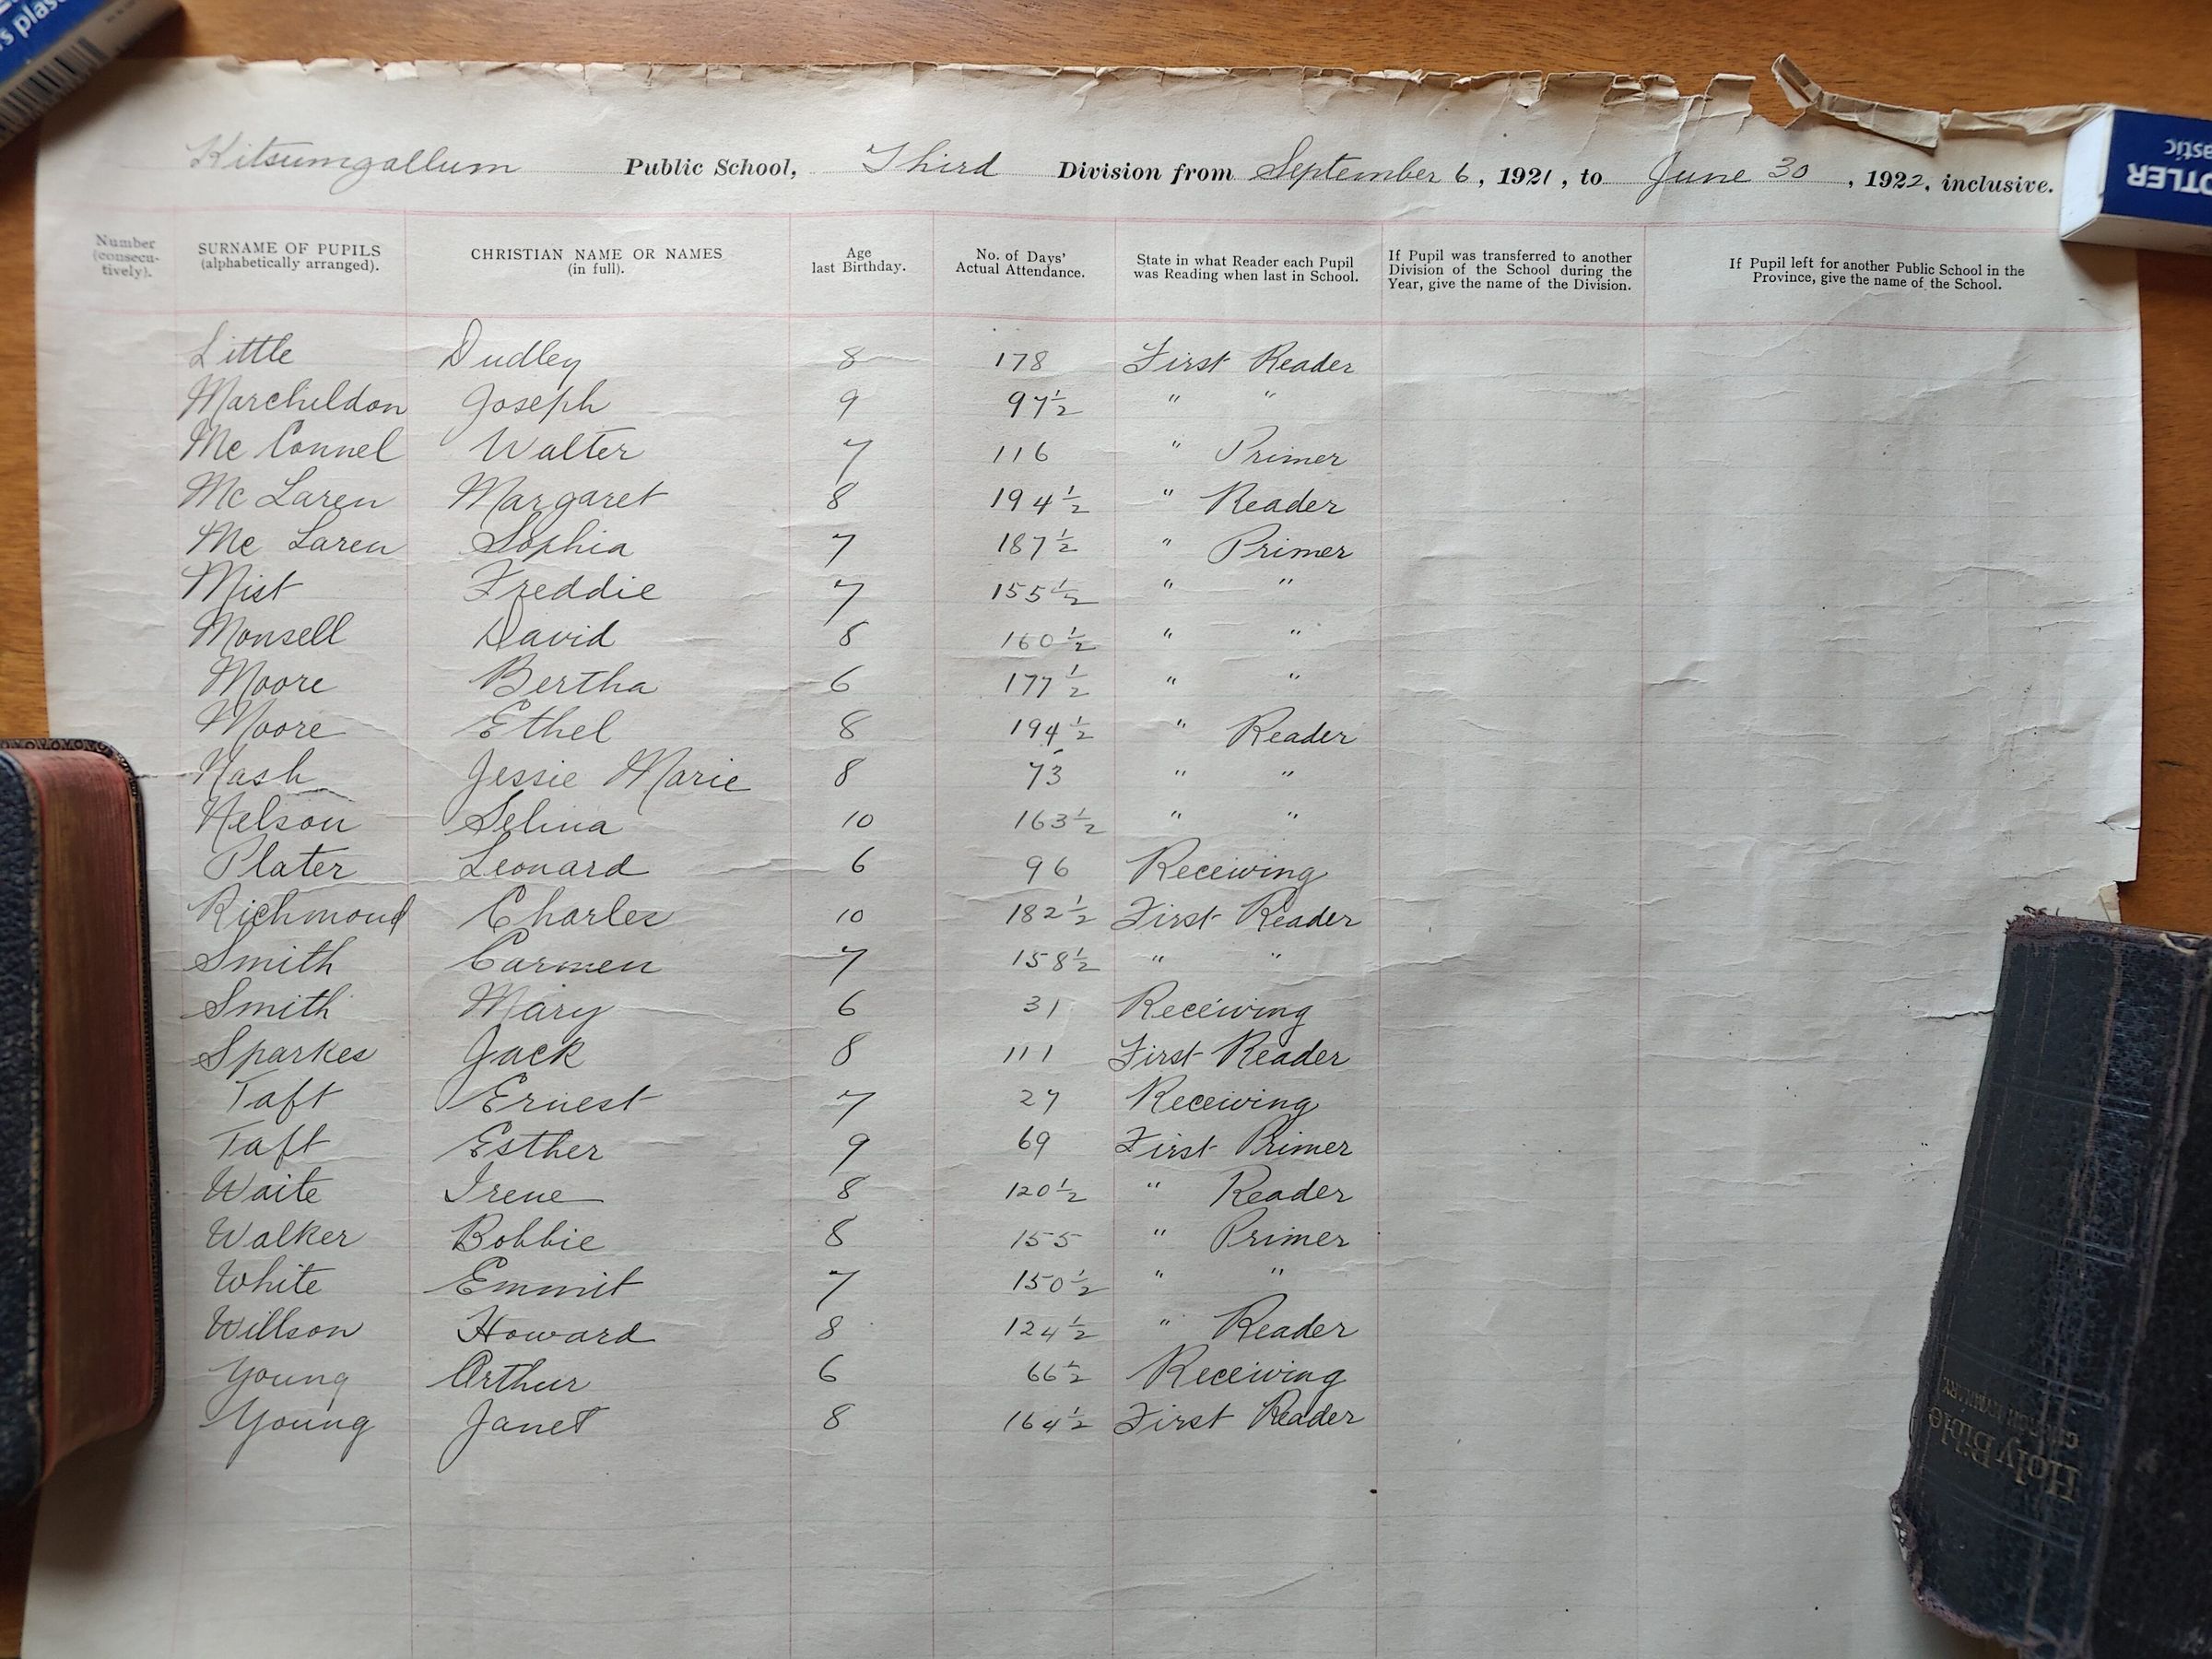 Kitsumgallum Public School, Third Division from September 6, 1921, to June 30, 1922, inclusive.
Number (consecu-tively). SURNAME OF PUPILS (alphabetically arranged). CHRISTIAN NAME OR NAMES (in full). Age last Birthday. No. of Days' Actual Attendance. State in what Reader each Pupil was Reading when last in School. If Pupil was transferred to another Division of the School during the Year, give the name of the Division. If Pupil left for another Public School in the Province, give the name of the School.
Little Dudley 8 178 First Reader
Marcheldon Joseph 9 97½ " "
Mc Connel Walter 7 116 " Primer
Mc Laren Margaret 8 194½ " Reader
Mc Laren Sophia 7 187½ " Primer
Mist Freddie 7 155½ " "
Monsell David 8 160½ " "
Moore Bertha 6 177½ " "
Moore Ethel 8 194½ " Reader
Nash Jessie Marie 8 73 " "
Nelson Selina 10 163½ " "
Plater Leonard 6 96 Receiving
Richmond Charles 10 182½ First Reader
Smith Carmen 7 158½ " "
Smith Mary 6 31 Receiving
Sparkes Jack 8 111 First Reader
Taft Ernest 7 27 Receiving
Taft Esther 9 69 First Primer
Waite Irene 8 120½ " Reader
Walker Bobbie 8 155 " Primer
White Emmit 7 150½ " "
Willson Howard 8 124½ " Reader
Young Arthur 6 66½ Receiving
Young Janet 8 164½ First Reader
Holy Bible